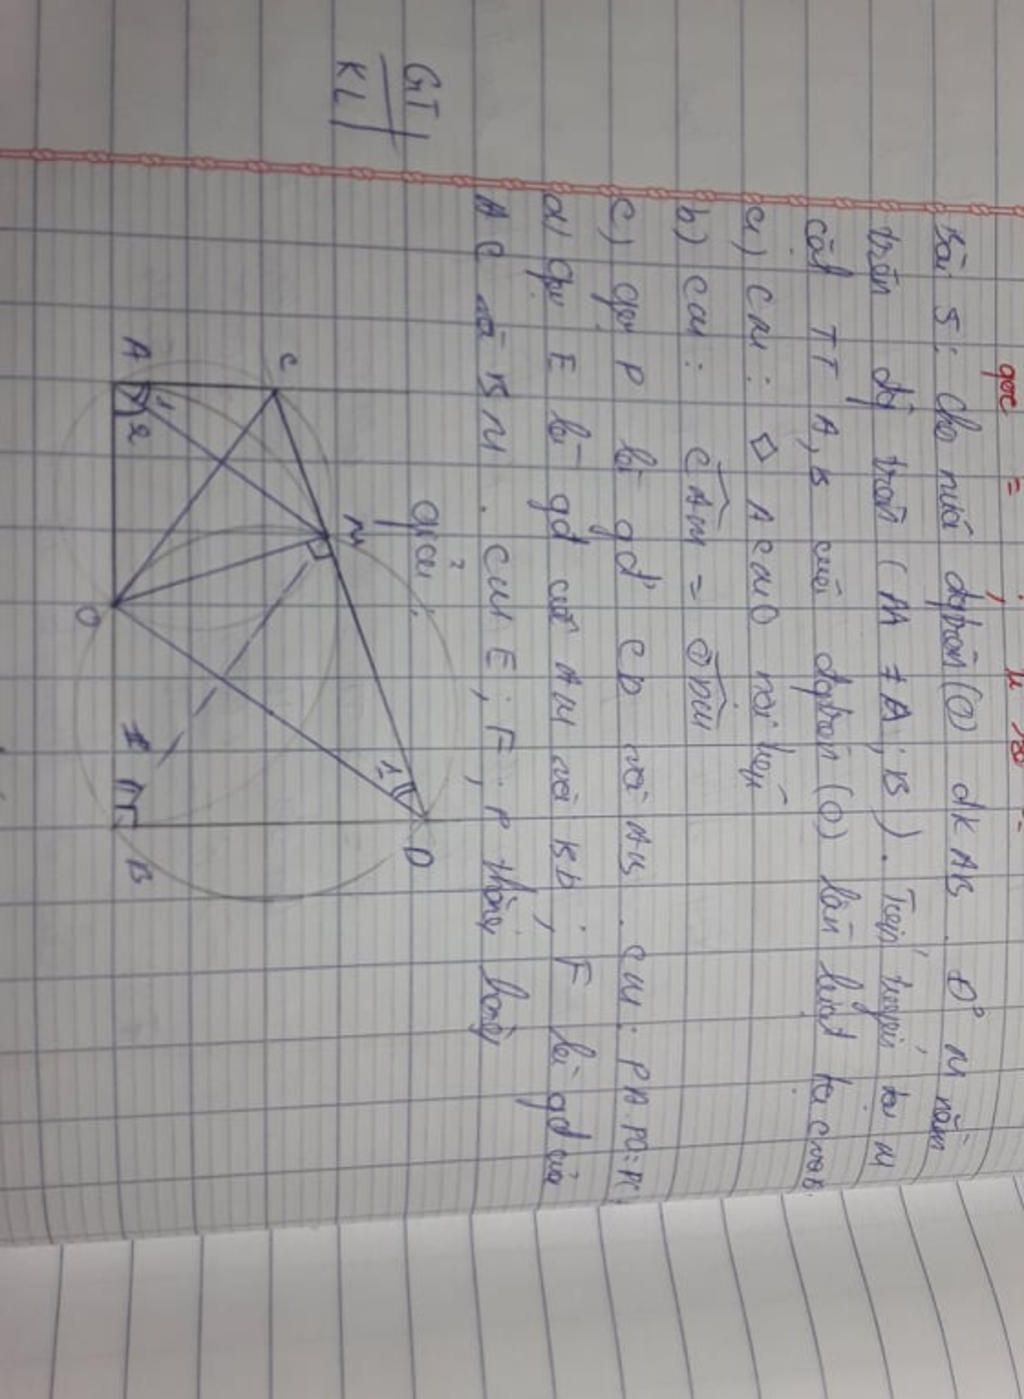 góc =
Bài 5: Cho nửa đgtròn (O) đk AB. Đ° M nằm
trên đg tròn (M ≠ A; B). Tiếp tuyến tại M
cắt TT A, B của đgtròn (O) lần lượt tại C và D.
a) CM: ◇ ACMO nội tiếp
b) CM: CAM = ODM
c) gọi P là gđ CD và AB. CM: PA.PO=PC.
d) gọi E là gđ của AM và BD; F là gđ của
AC và BM. CM E; F; P thẳng hàng
giải:
GT
KL
C
M
D
A
1
2
1
O
B